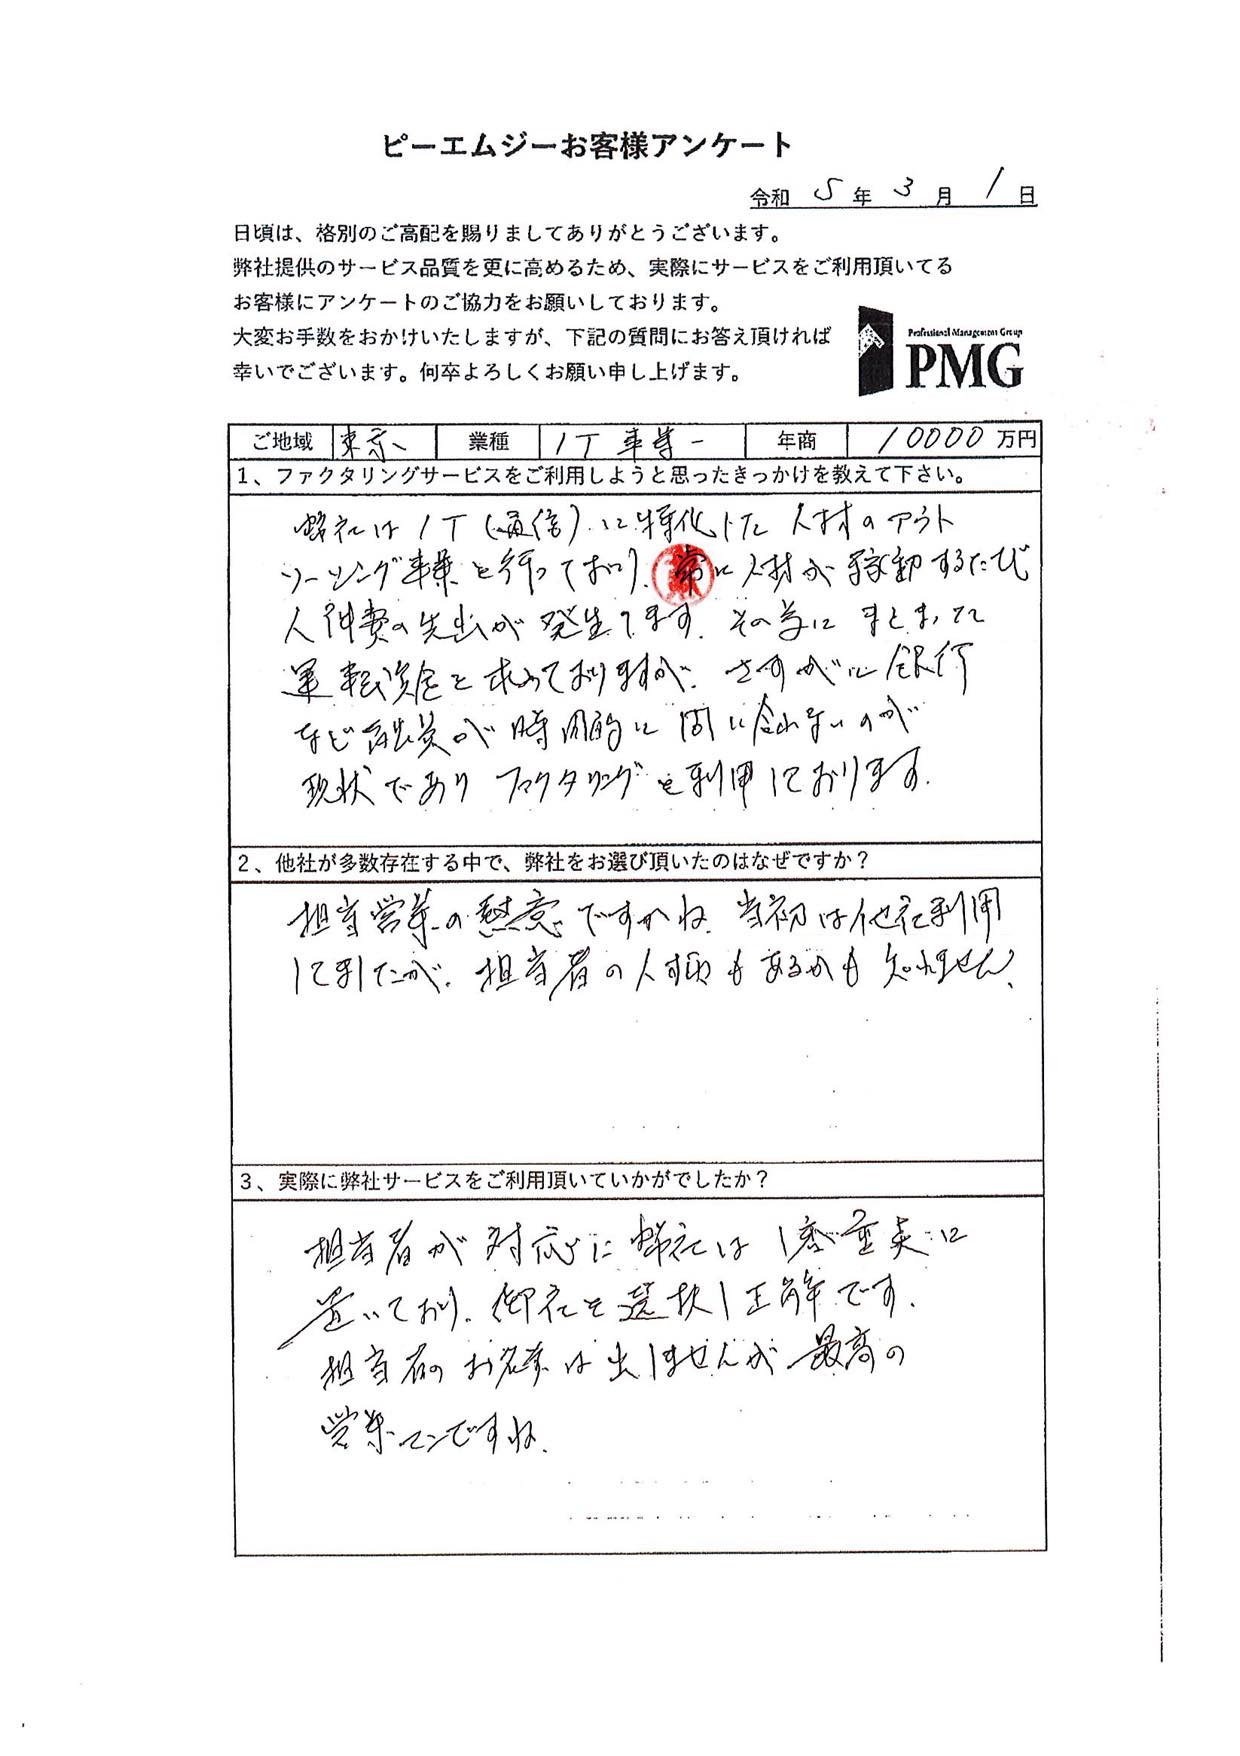 ピーエムジーお客様アンケート
令和 5 年 3 月 1 日
日頃は、格別のご高配を賜りましてありがとうございます。
弊社提供のサービス品質を更に高めるため、実際にサービスをご利用頂いてる
お客様にアンケートのご協力をお願いしております。
大変お手数をおかけいたしますが、下記の質問にお答え頂ければ
幸いでございます。何卒よろしくお願い申し上げます。
Professional Management Group
PMG
ご地域 東京 業種 IT 年商 10000 万円
1、ファクタリングサービスをご利用しようと思ったきっかけを教えて下さい。
弊社は IT (通信) に特化した 人材のアウト
ソーシング事業を行っており、常に人材が稼動するたび
人件費の先出が発生してます。その為に まとまった
運転資金を求めておりますが、さすがに銀行
など融資が時間的に間に合わないのが
現状であり ファクタリングを利用しております。
2、他社が多数存在する中で、弊社をお選び頂いたのはなぜですか？
担当営業の ですかね。当初は他社利用
してましたが、担当者の人柄もあるかも知れません。
3、実際に弊社サービスをご利用頂いていかがでしたか？
担当者が対応に弊社は1番重点に
置いており、御社を選択し正解です。
担当者のお名前は出しませんが最高の
営業マンですね。